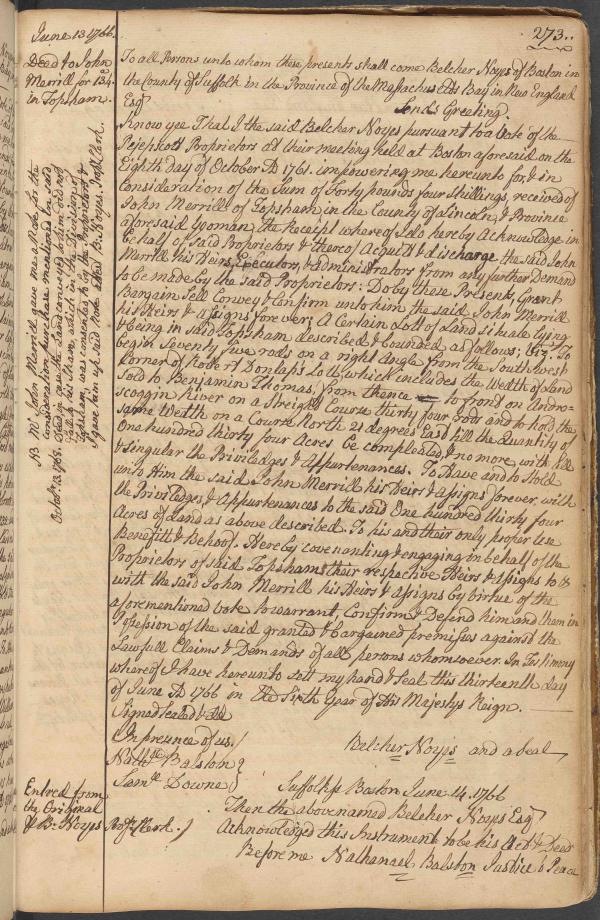 273..
June 13 1766.
Deed to John
Merrill for 134.a
in Topsham.
To all Persons unto whom these presents shall come Belcher Noyes of Boston in
the County of Suffolk in the Province of the Massachusetts Bay in New England
Esqr Sends Greeting.
Know yee That I the said Belcher Noyes pursuant to a Vote of the
Pejepscott Proprietors at their meeting held at Boston aforesaid on the
Eighth day of October AD 1761. impowering me hereunto for & in
Consideration of the Sum of Forty pounds four Shillings received of
John Merrill of Topsham in the County of Lincoln & Province
aforesaid Yeoman, the Receipt whereof I do hereby Acknowledge in
behalf of said Proprietors & thereof Acquitt & discharge the said John
Merrill his Heirs, Executors, & administrators from any further Demand
to be made by the said Proprietors: Do by these Presents, Grant
Bargain Sell Convey & Confirm unto him the said John Merrill
his Heirs & assigns forever; A Certain Lott of Land situate lying
& being in said Topsham described & bounded as follows; Viz. To
begin Seventy five rods on a right Angle from the Southwest
Corner of Robert Dunlaps Lott, which includes the Wedth of Land
Sold to Benjamin Thomas, from thence to front on Andro-
scoggin River on a Streight Course thirty four rods and to hold the
same Wedth on a Course North 21 degrees East till the Quantity of
One hundred thirty four Acres be compleated, & no more, with All
& singular the Priviledges & Appurtenances. To Have and to Hold
unto Him the said John Merrill his Heirs & assigns forever, with
the Priviledges & Appurtenances to the said One hundred thirty four
Acres of Land as above described. To his and their only proper Use
Benefitt & Behoof. Hereby covenanting & engaging in behalf of the
Proprietors of said Topsham their respective Heirs & assigns to &
with the said John Merrill his Heirs & assigns by virtue of the
aforementioned vote to warrant, Confirm & Defend him and them in
Possession of the said granted & bargained premisses against the
Lawfull Claims & Demands of all persons whomsoever. In Testimony
whereof I have hereunto sett my hand & Seal this thirteenth day
of June AD 1766 in the Sixth Year of His Majestys Reign.
Signed Sealed & dd
In presence of us.
Nathll Balston
Samll Downe
Belcher Noyes and a Seal
Suffolk ss Boston June 14. 1766
Then the abovenamed Belcher Noyes Esqr
Acknowledged this Instrument to be his Act & Deed
Before me Nathanael Balston Justice o Peace
Entred from
the Original
Br Noyes Propr Clerk.
NB Mr John Merrill gave me a Note for the
Consideration mentioned in said
October 13. 1768.